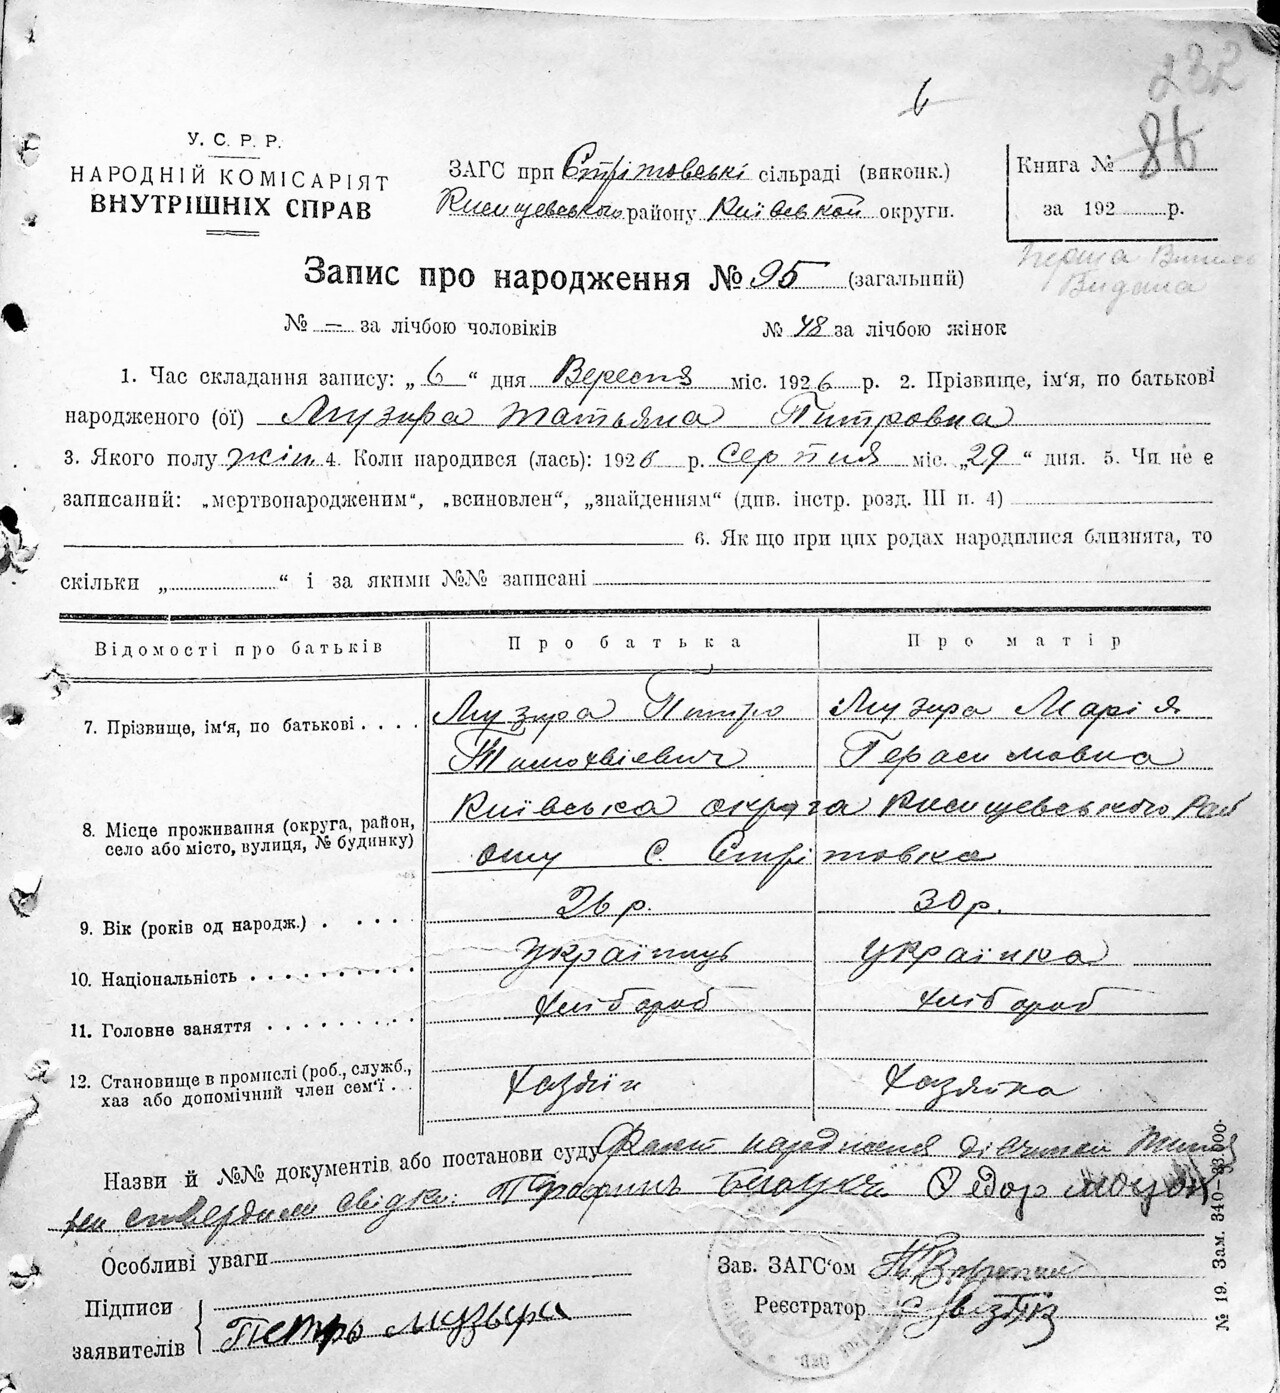 232
6
86
У. С. Р. Р.
НАРОДНІЙ КОМІСАРІЯТ
ВНУТРІШНІХ СПРАВ
ЗАГС при Стрітовські сільраді (виконк.)
Кисищевського району Київської округи.
Книга №
за 192 р.
Перша Випись
Видана
Запис про народження № 95 (загальний)
№ — за лічбою чоловіків № 48 за лічбою жінок
1. Час складання запису: „ 6 “ дня Вересня міс. 1926 р. 2. Прізвище, ім'я, по батькові
народженого (ої) Музира Татьяна Питровна
3. Якого полу жін 4. Коли народився (лась): 1926 р. серпня міс. „29“ дня. 5. Чи не є
записаний: „мертвонародженим“, „всиновлен“, „знайденням“ (див. інстр. розд. III п. 4)
6. Як що при цих родах народилися близнята, то
скільки „ “ і за якими №№ записані
Відомості про батьків Про батька Про матір
7. Прізвище, ім'я, по батькові . . . . Музира Питро Музира Марія
Тимохвієвич Герасимовна
8. Місце проживання (округа, район, село або місто, вулиця, № будинку) Київська округа Кисищевського Рай
ону с. Стрітовка
9. Вік (років од народж.) . . . . . 26 р. 30 р.
10. Національність . . . . . . . . . . Українець Українка
11. Головне заняття . . . . . . . . Хлібороб Хлібороб
12. Становище в промислі (роб., служб., хаз або допомічний член сем'ї . . . Хазяїн Хазяйка
Назви й №№ документів або постанови суду Факт народження дівчинки
ствердили свідки: Федор
Особливі уваги
Зав. ЗАГС'ом
Підписи
заявителів
Петро Музыра
Реєстратор
№ 19. Зам. 340—33.000.